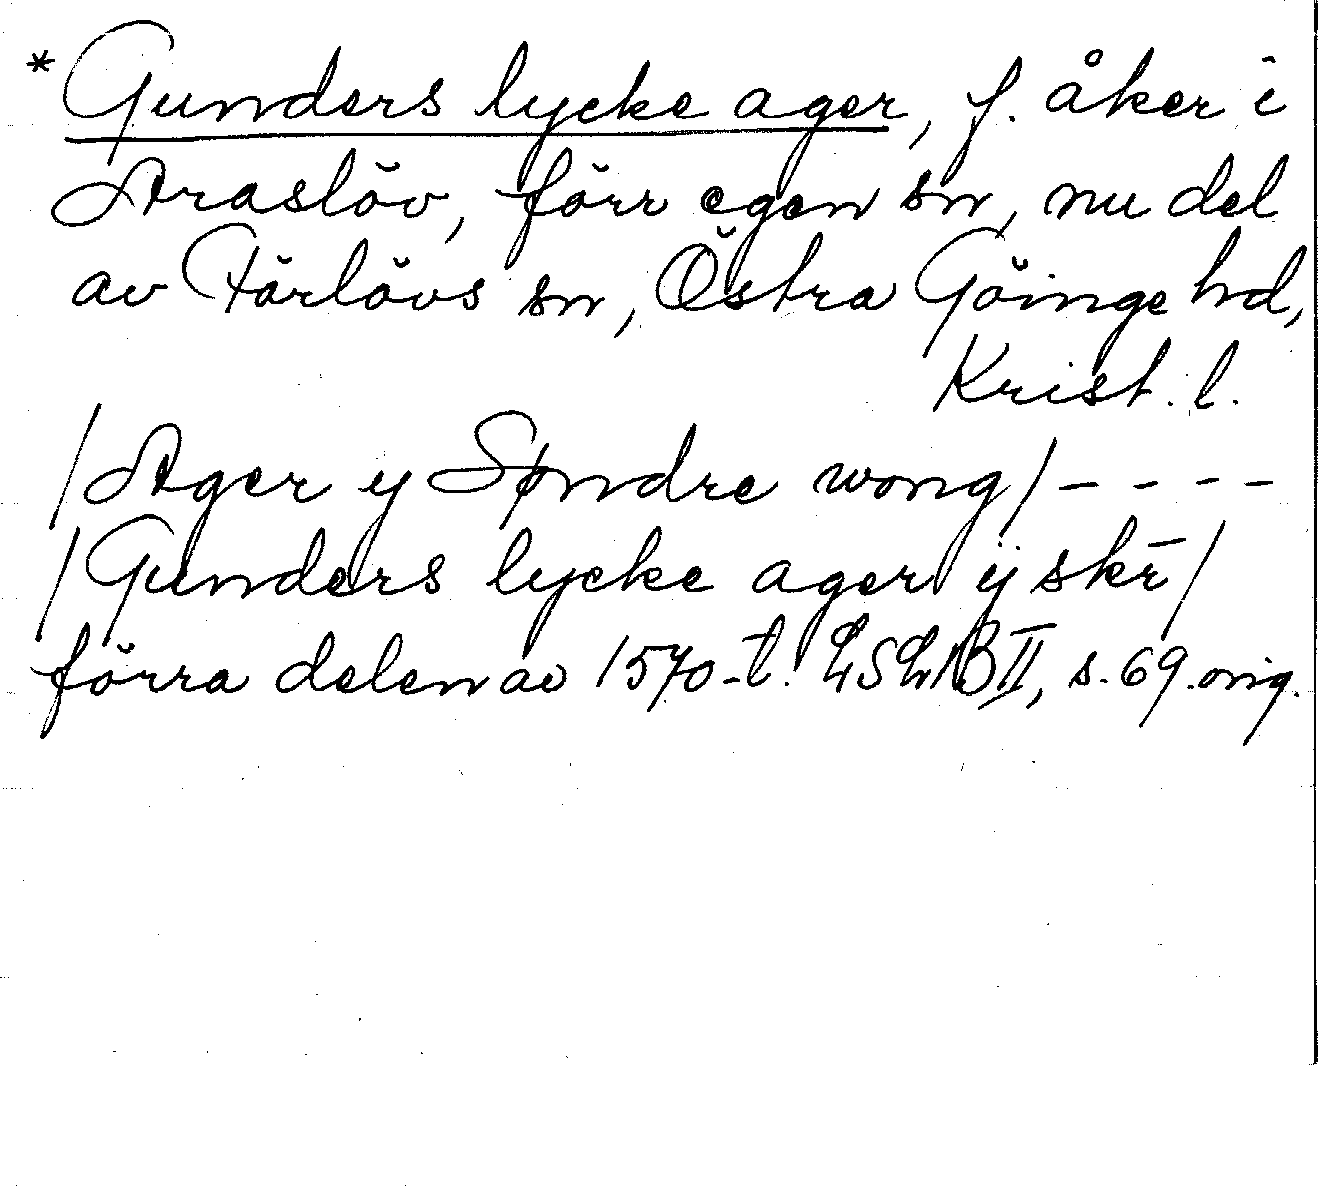 * Gunders lycke ager, f. åker i
Araslöv, förr egen sn, nu del
av Färlövs sn, Östra Göinge hd,
Krist. l.
/Ager y Søndre wong/ - - - -
/Gunders lycke ager ÿ skr̄/
förra delen av 1570-t. LSLB II, s. 69. orig.